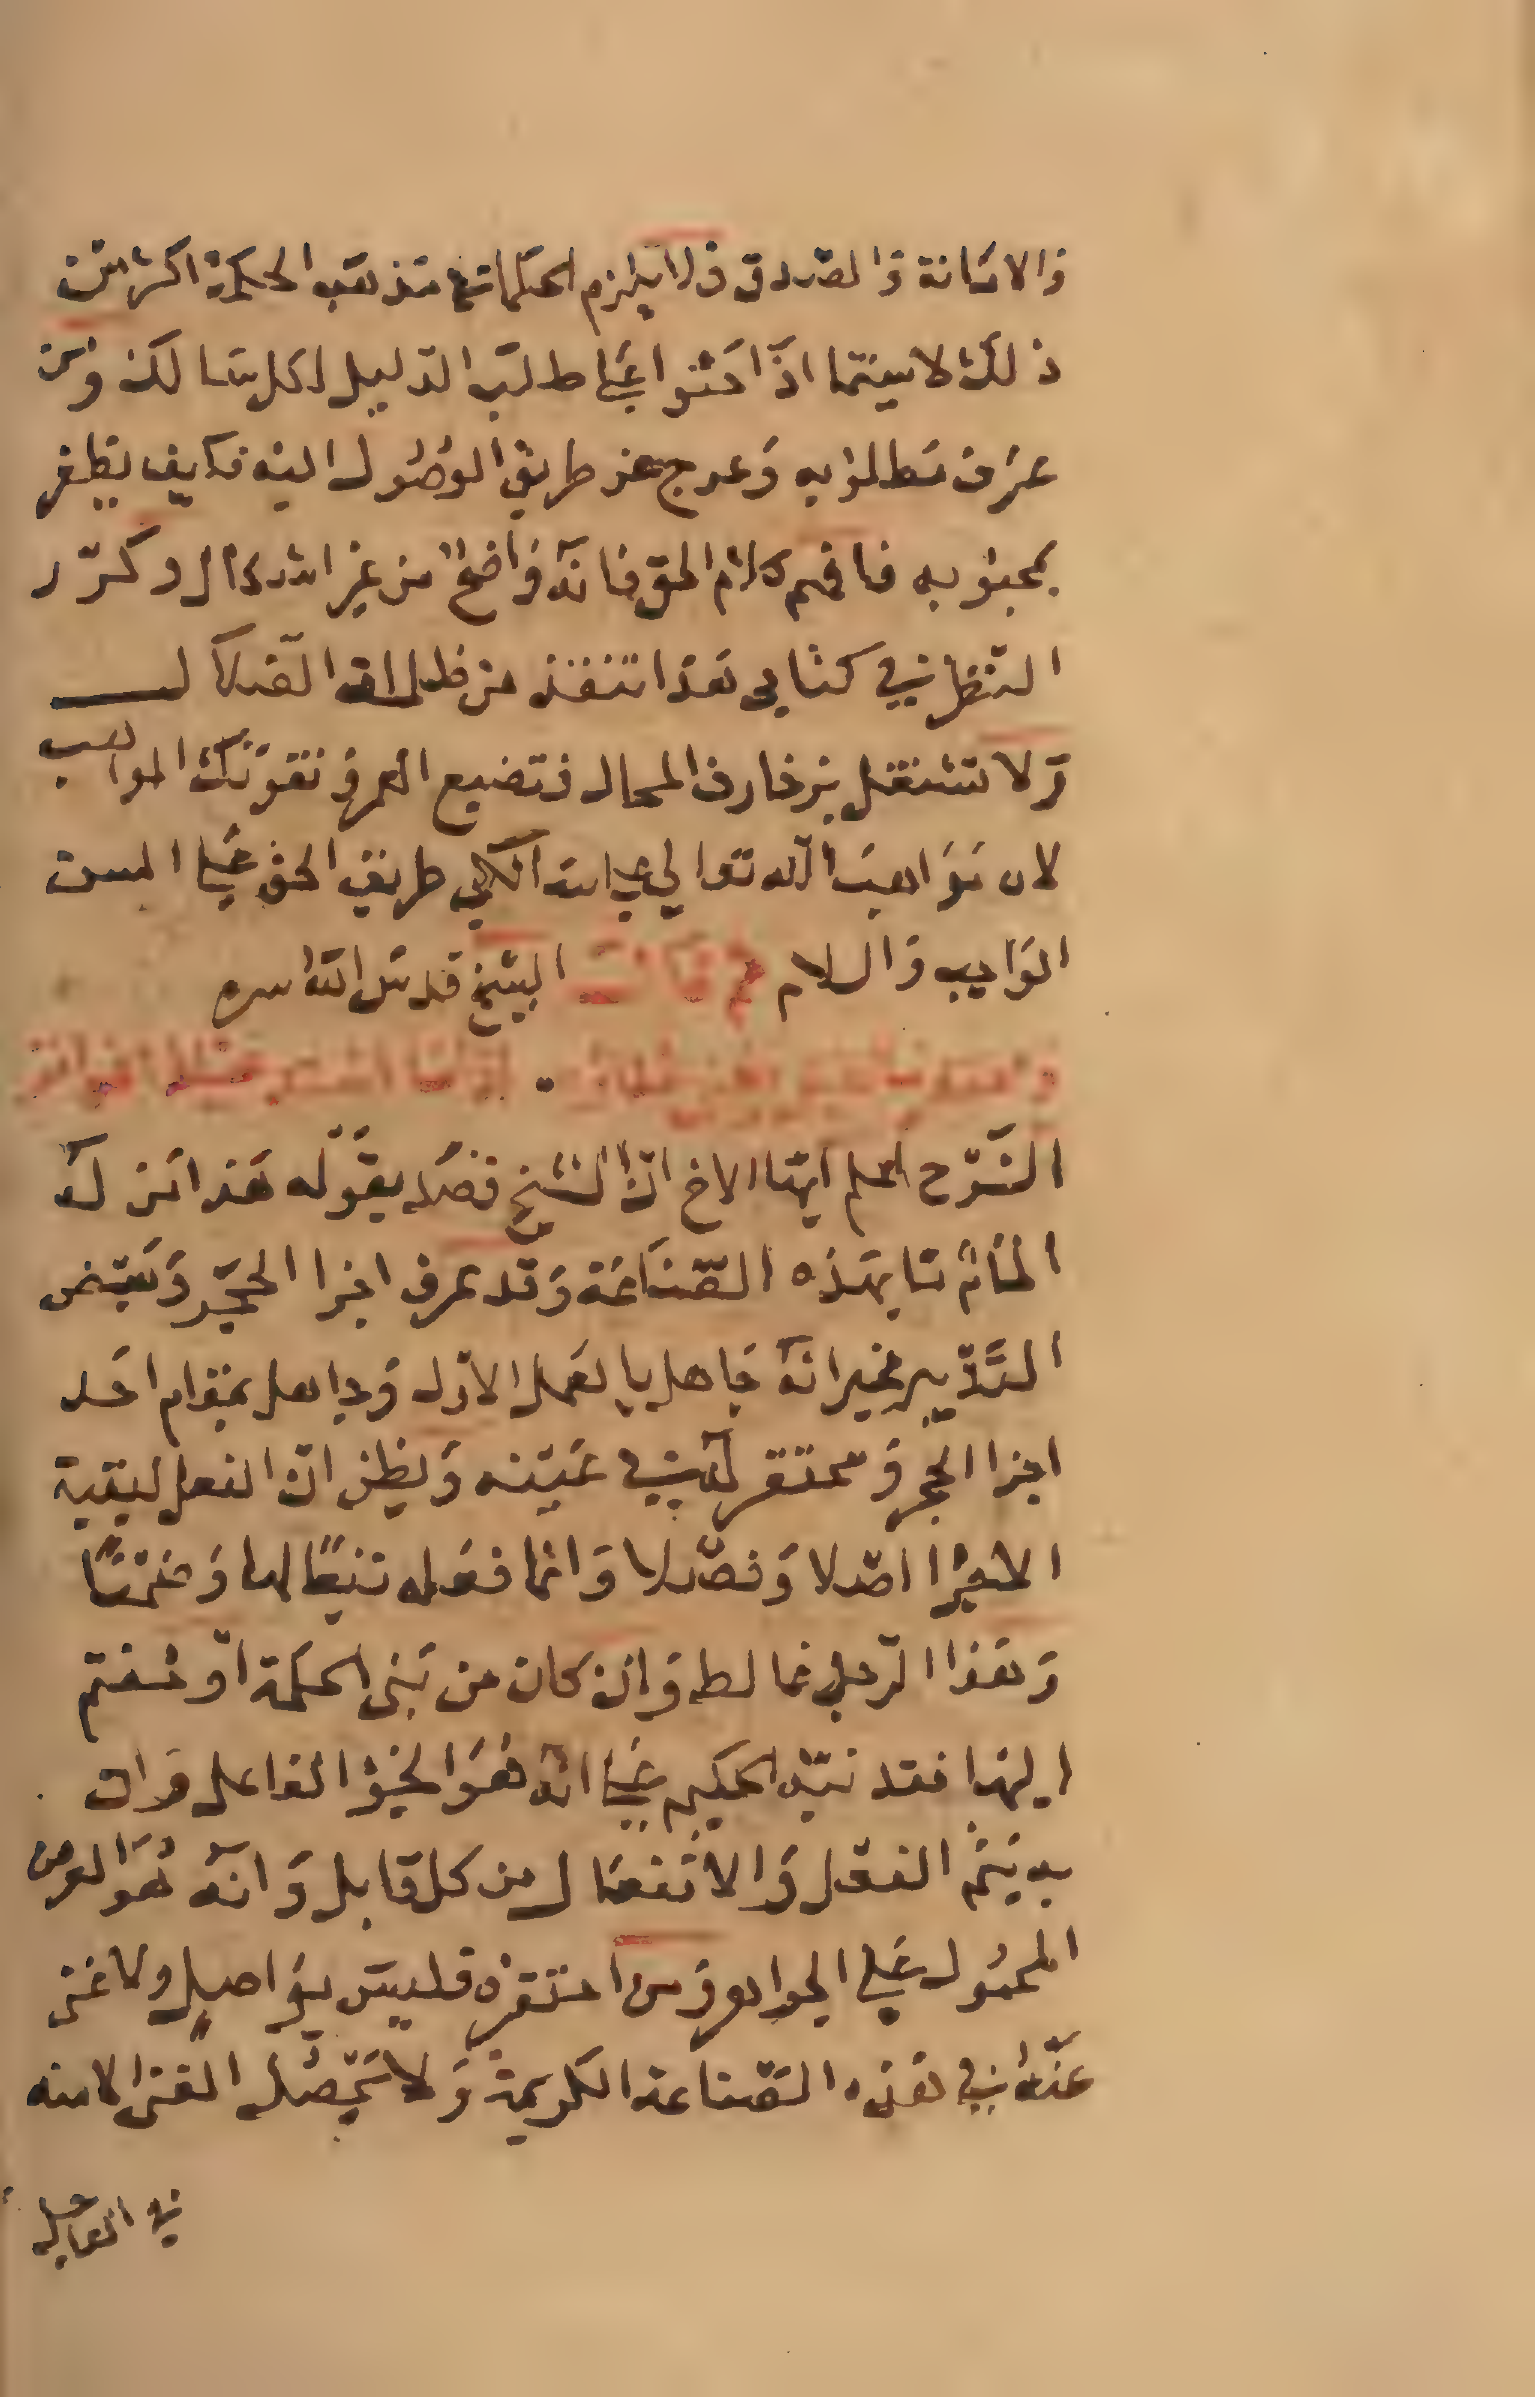 والامانة والصدق فلا يلزم الحكما في مذهب الحكمة اكثر من
ذلك لا سيما اذا حثوا على طلب الدليل لكل سالك ومن
عرف مطلوبه وعرج عن طريق الوصول اليه فكيف يظفر
بمحبوبه فافهم كلام الحق فانه واضح من غير اشكال وكرّر
النظر في كتابي هذا تنقذ من ظلمات الضلال
ولا تشتغل بزخارف المحال فتضيع العمر وتفوتك المواهب
لان مواهب الله تعالى على سالكي طريق الحق على السنن
الواجب والسلام قال الشيخ قدس الله سره
الشرح اعلم ايها الاخ ان الشيخ قصد بقوله هذا من له
المام ما بهذه الصناعة وقد عرف اجزا الحجر وبعض
التدبير غير انه جاهل بالعمل الاول وجاهل بمقام احد
اجزا الحجر ومحتقر له في عينه ويظن ان الفعل لبقية
الاجزا اصلا وفصلا وانما فعله تبعا لها وضمنا
وهذا الرجل غالط وان كان من بني الحكمة او منتم
اليها فقد نبه الحكيم على انه هو الجزؤ الفاعل وان
به يتم الفعل والانفعال من كل قابل وانه هو العرض
المحمول على الجواهر ومن احتقره فليس بواصل ولا غنى
عنه في هذه الصناعة الكريمة ولا يحصل الغنى الا منه
في العاجل